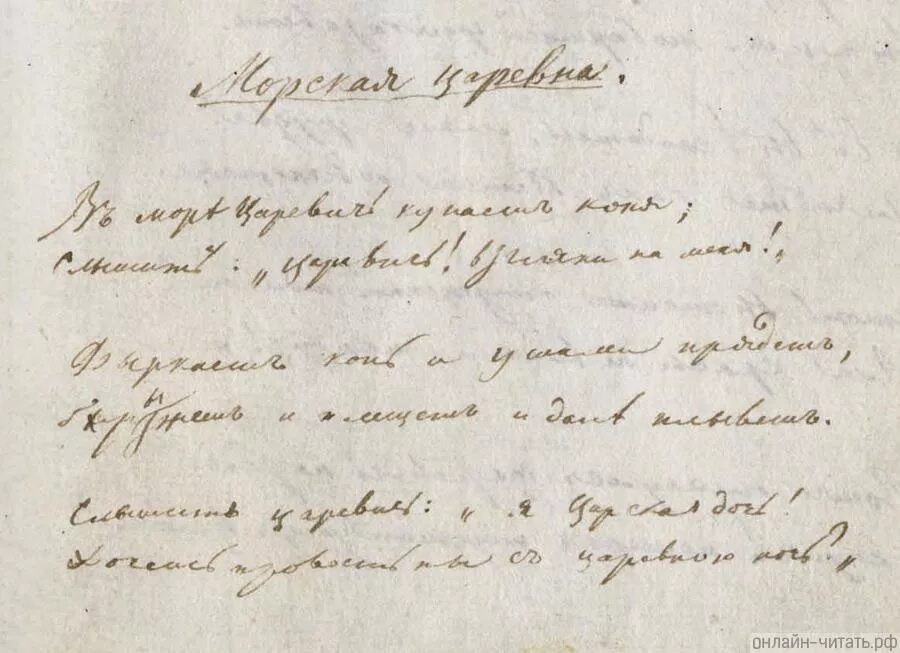 Морская царевна.
Въ морѣ Царевичь купаетъ коня;
Слышитъ: „царевичь! взгляни на меня!„
Фыркаетъ конь и ушами прядетъ,
брыжжетъ и плещетъ и далѣ плыветъ.
Слышитъ царевичь: „я Царская дочь!
Хочешь провесть ты съ царевною ночь?„
онлайн-читать.рф